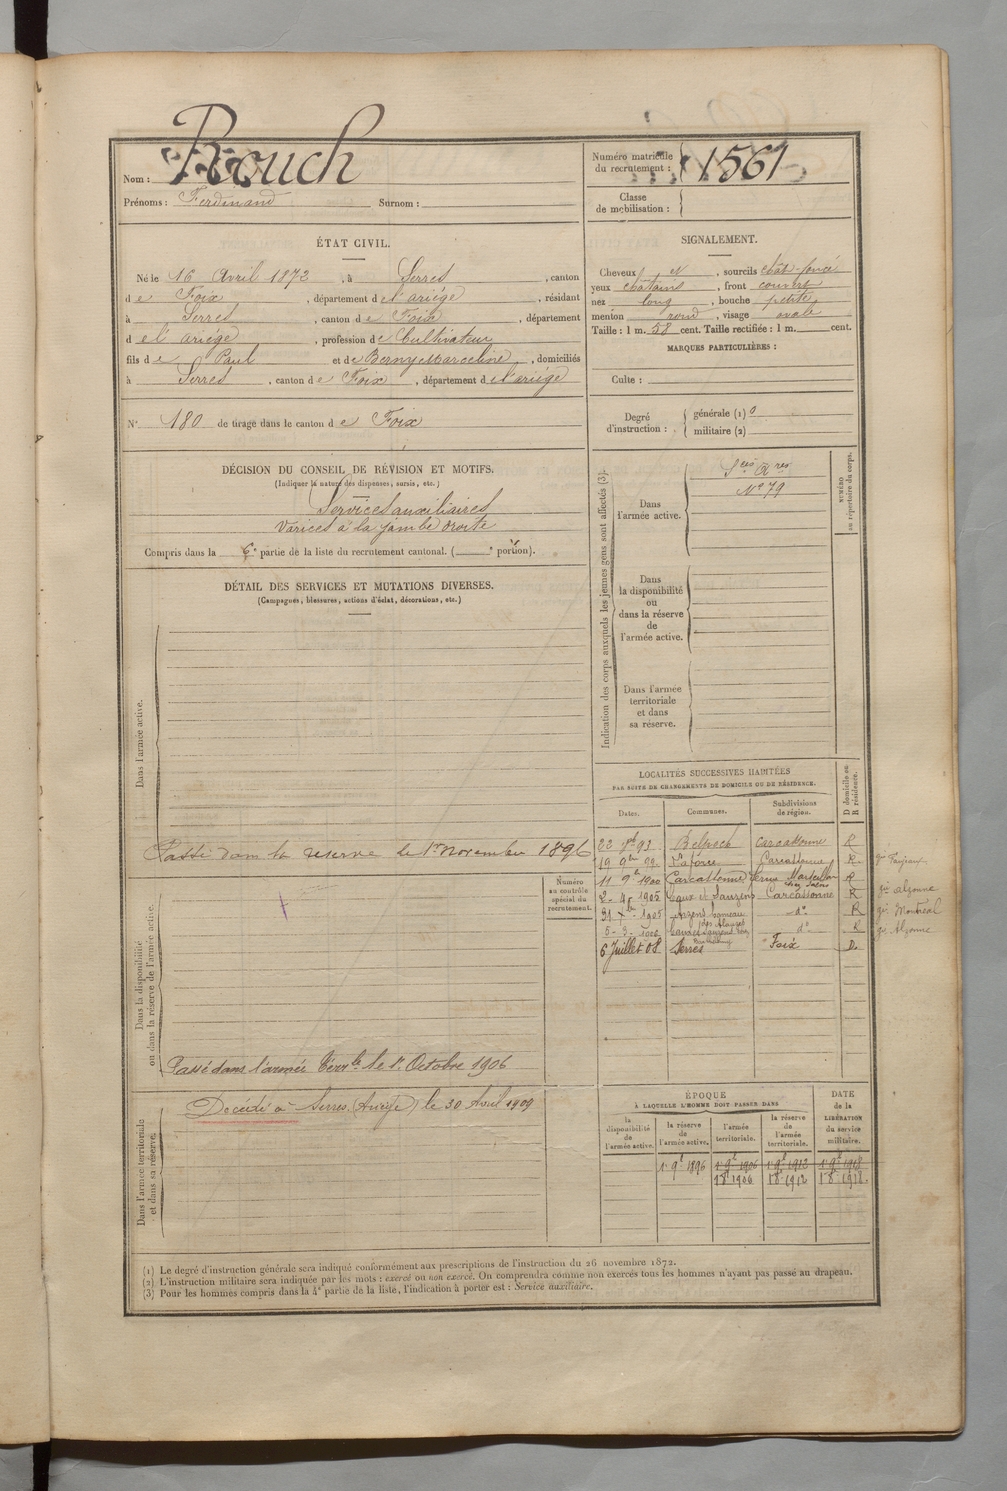 Nom : Rouch
Prénoms : Ferdinand Surnom :
Numéro matricule du recrutement : 1561
Classe de mobilisation :
ÉTAT CIVIL.
Né le 16 Avril 1872, à Serres, canton
de Foix, département de l'ariège, résidant
à Serres, canton de Foix, département
d el ariège, profession de Cultivateur
fils de Paul et de Berny Marceline, domiciliés
à Serres, canton de Foix, département de l'ariège
N° 180 de tirage dans le canton de Foix
SIGNALEMENT.
Cheveux et, sourcils chât-foncé
yeux chatains, front couvert
nez long, bouche petite
menton rond, visage ovale
Taille : 1 m. 58 cent. Taille rectifiée : 1 m. cent.
MARQUES PARTICULIÈRES :
Culte :
Degré d'instruction : générale (1) 0
militaire (2)
DÉCISION DU CONSEIL DE RÉVISION ET MOTIFS.
(Indiquer la nature des dispenses, sursis, etc.)
Services auxiliaires
Varices à la jambe droite
Compris dans la 6e partie de la liste du recrutement cantonal. ( e portion).
DÉTAIL DES SERVICES ET MUTATIONS DIVERSES.
(Campagnes, blessures, actions d'éclat, décorations, etc.)
Dans l'armée active.
Passé dans la reserve le 1er Novembre 1896
Dans la disponibilité
ou dans la réserve de l'armée active.
Numéro
au contrôle
spécial du
recrutement.
Passé dans l'armée terrle le 1er Octobre 1906
Dans l'armée territoriale
et dans sa réserve.
Décédé à Serres (Ariège) le 30 Avril 1909
Indication des corps auxquels les jeunes gens sont affectés (3).
NUMÉRO
au répertoire du corps.
Dans
l'armée active.
Sces Ares
N° 79
Dans
la disponibilité
ou
dans la réserve
de
l'armée active.
Dans l'armée
territoriale
et dans
sa réserve.
LOCALITÉS SUCCESSIVES HABITÉES
PAR SUITE DE CHANGEMENTS DE DOMICILE OU DE RÉSIDENCE.
Dates. Communes. Subdivisions de région. D domicile ou R résidence.
22 93 Belpech Carcassonne R
19 9bre 99 Laforce Carcassonne R. Fanjeaux
11 9bre 1900 Carcassonne R
2-4-1905 Carcassonne R Alzonne
31 1905 hameau do R Montréal
5-3-1906 do R Alzonne
6 Juillet 08 Serres Foix D.
ÉPOQUE
À LAQUELLE L'HOMME DOIT PASSER DANS
DATE
de la
LIBÉRATION
du service
militaire.
la
disponibilité
de
l'armée active.
la réserve
de
l'armée active.
l'armée
territoriale.
la réserve
de
l'armée
territoriale.
1er 9bre 1896 1er 9bre 1906 1er 9bre 1912 1er 9bre 1918
1 8bre 1906 1 8bre 1912 1 8bre 1918.
(1) Le degré d'instruction générale sera indiqué conformément aux prescriptions de l'instruction du 26 novembre 1872.
(2) L'instruction militaire sera indiquée par les mots : exercé ou non exercé. On comprendra comme non exercés tous les hommes n'ayant pas passé au drapeau.
(3) Pour les hommes compris dans la 4e partie de la liste, l'indication à porter est : Service auxiliaire.